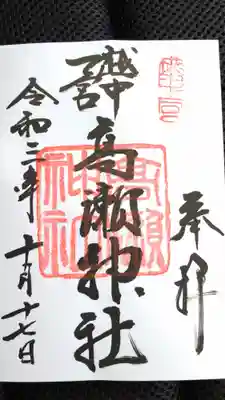 奉拝
越中
一宮
高瀬神社
高瀬
神社
令和二年十一月十七日